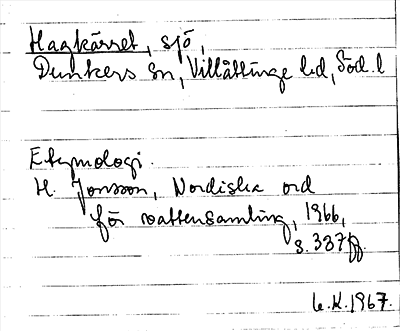 Hagkärret, sjö,
Dunkers sn, Villåttinge hd, Söd. l
Etymologi.
H. Jonsson, Nordiska ord
för vattensamling, 1966,
s. 337ff.
K. 1967.